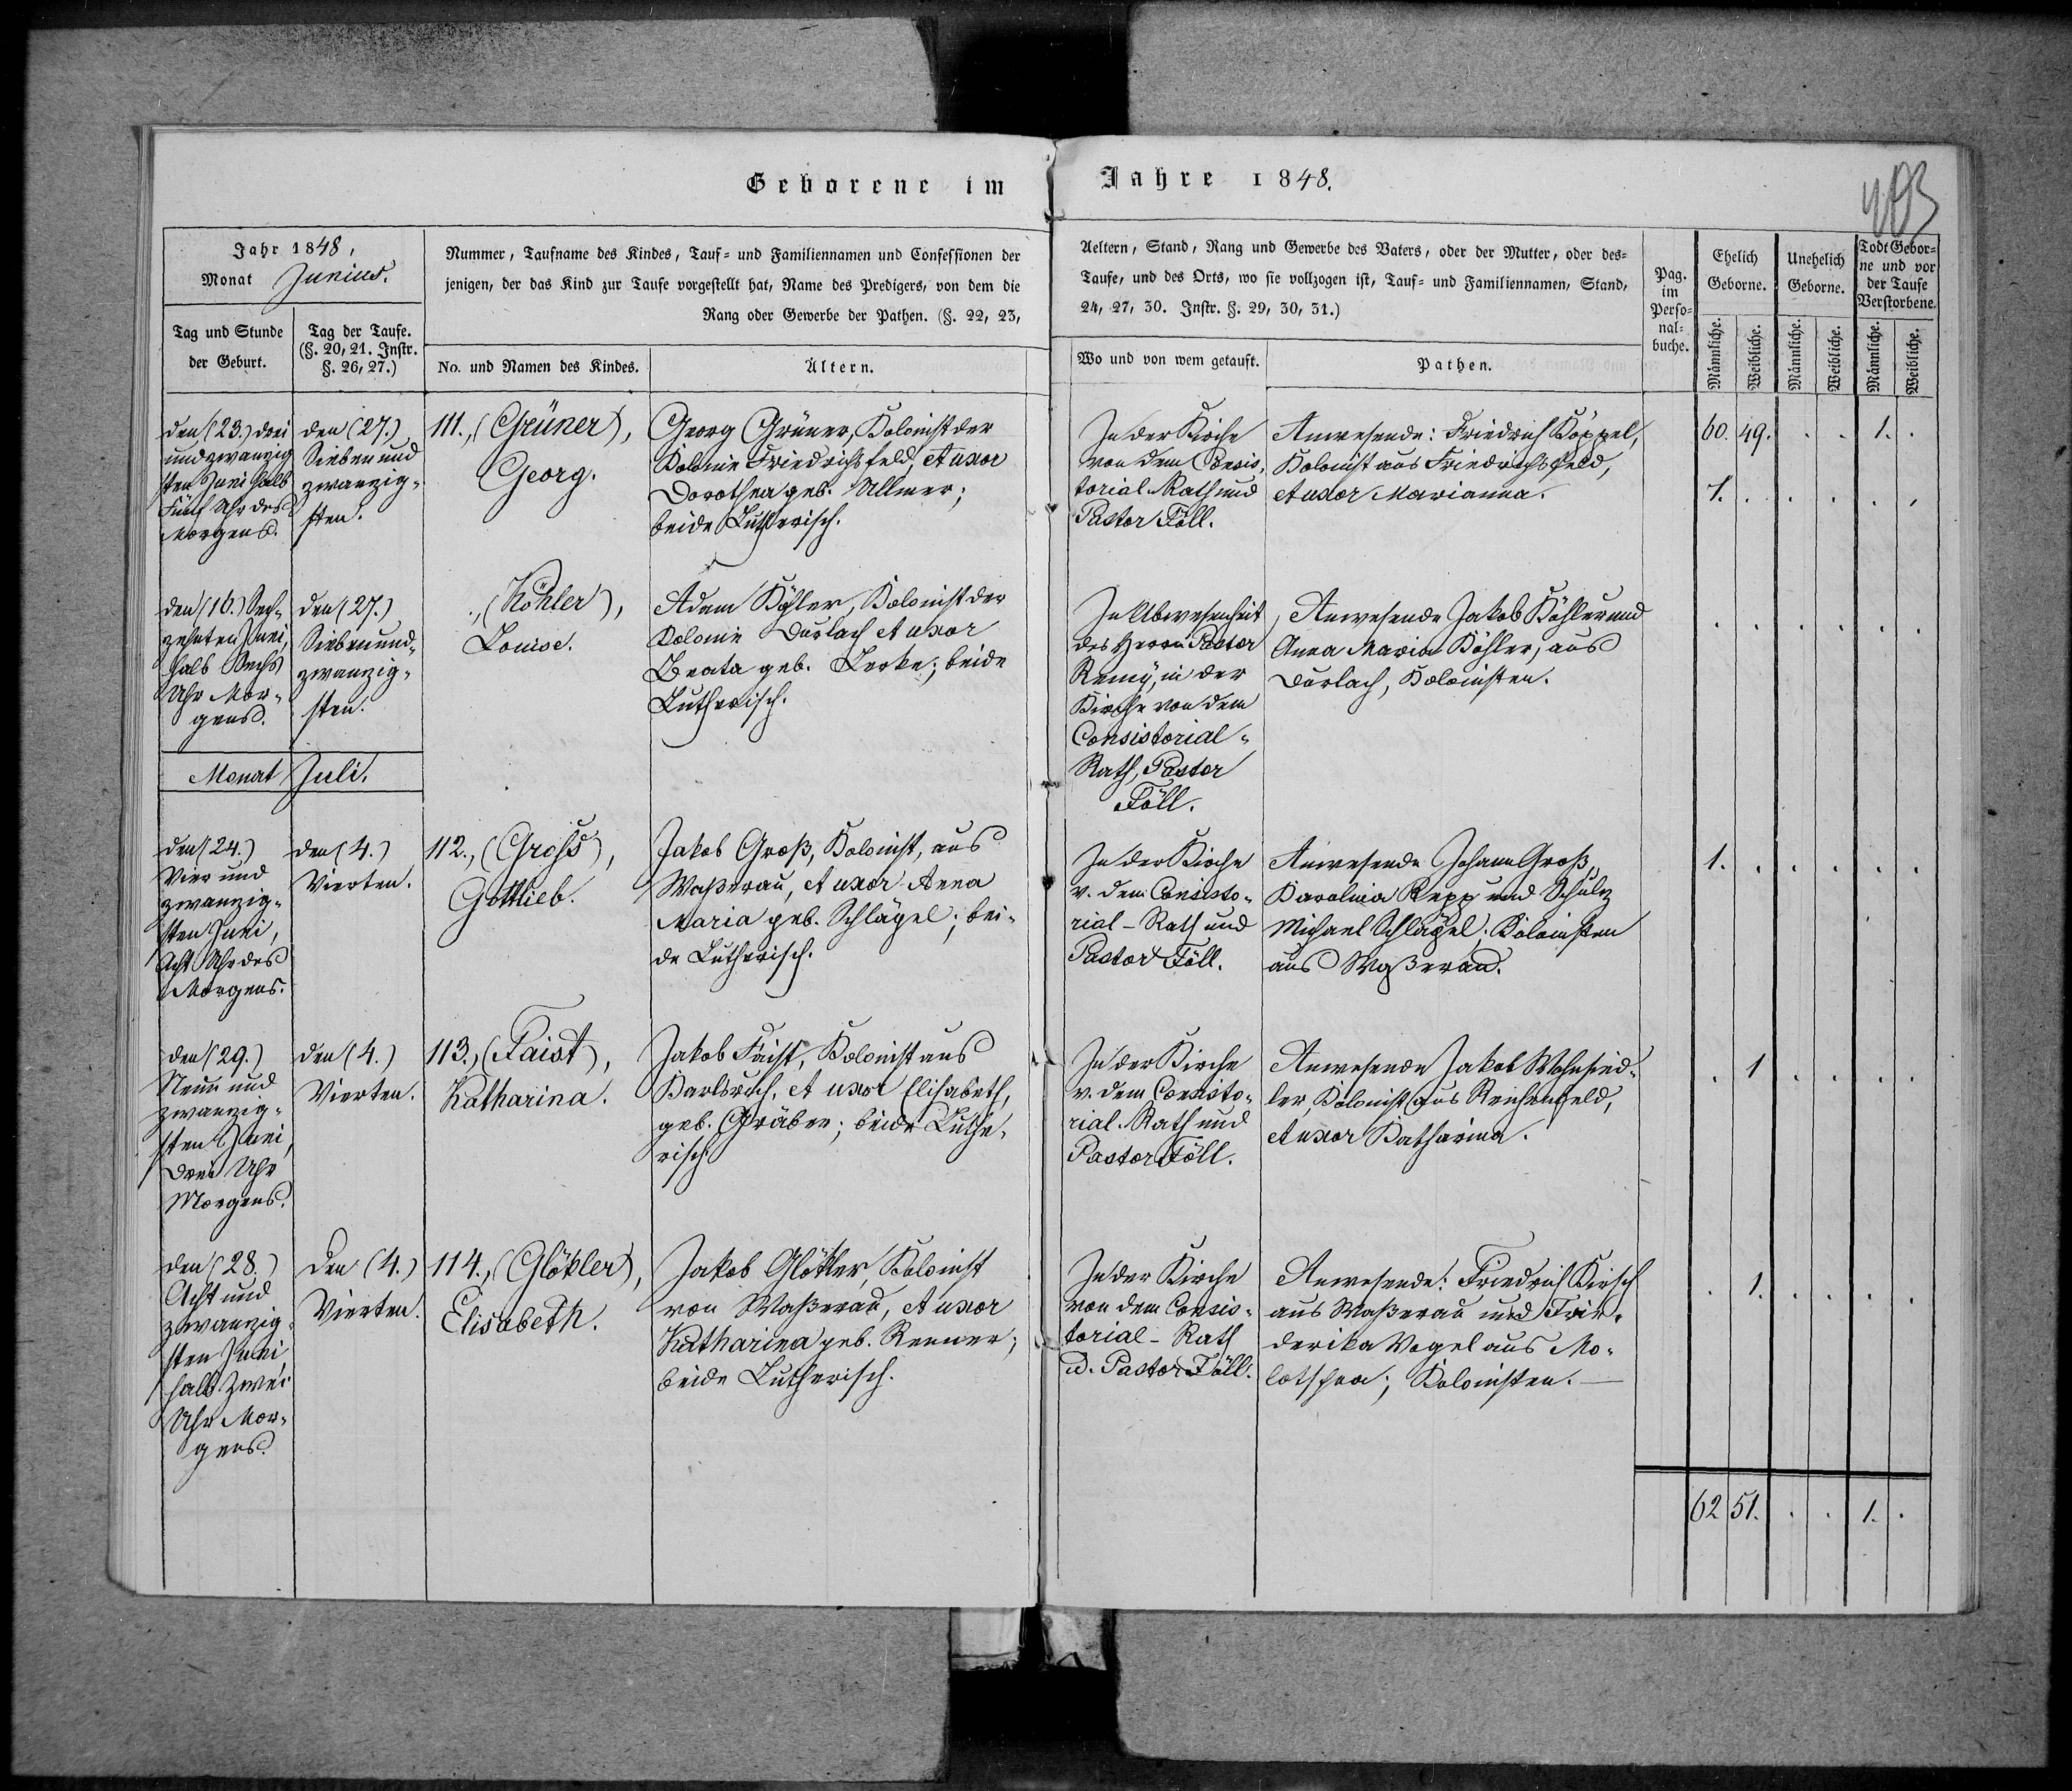 Geborene im Jahre 1848.
403
Jahr 1848,
Monat Junius.
Tag und Stunde
der Geburt.
Tag der Taufe.
(§. 20, 21. Instr.
§. 26, 27.)
Nummer, Taufname des Kindes, Tauf- und Familiennamen und Confessionen der
jenigen, der das Kind zur Taufe vorgestellt hat, Name des Predigers, von dem die
Rang oder Gewerbe der Pathen. (§. 22, 23,
No. und Namen des Kindes.
Ältern.
Aeltern, Stand, Rang und Gewerbe des Vaters, oder der Mutter, oder des-
Taufe, und des Orts, wo sie vollzogen ist, Tauf- und Familiennamen, Stand,
24, 27, 30. Instr. §. 29, 30, 31.)
Wo und von wem getauft.
Pathen.
Pag.
im
Perso-
nal-
buche.
Ehelich
Geborne.
Unehelich
Geborne.
Todt Gebor-
ne und vor
der Taufe
Verstorbene.
Männliche.
Weibliche.
Männliche.
Weibliche.
Männliche.
Weibliche.
den (23.) drei
und zwanzig
sten Juni halb
Fünf Uhr des
Morgens.
den (27.)
Sieben und
zwanzig-
sten.
111., (Grüner),
Georg.
Georg Grüner, Kolonist der
Kolonie Friedrichsfeld, et uxor
Dorothea geb. Ullmer;
beide Lutherisch.
In der Kirche
von dem Consis-
torial-Rath und
Pastor Föll.
Anwesende: Friedrich Köppel,
Kolonist aus Friedrichsfeld,
et uxor Marianna.
60. 49. . . 1. .
1. . . . . .
den (16.) Sech-
zehnten Juni,
halb Sechs
Uhr Mor-
gens.
den (27.)
Sieben und-
zwanzig-
sten.
., (Köhler),
Louise.
Adam Köhler, Kolonist der
Kolonie Durlach et uxor
Beata geb. Jerke; beide
Lutherisch.
In Abwesenheit
des Herrn Pastor
Remÿ, in der
Kirche von dem
Consistorial-
Rath, Pastor
Föll.
Anwesende Jakob Köhler und
Anna Maria Köhler, aus
Durlach, Kolonisten.
. . . . . .
Monat Juli.
den (24.)
Vier und
zwanzig-
sten Juni,
Acht Uhr des
Morgens.
den (4.)
Vierten.
112., (Groß),
Gottlieb.
Jakob Groß, Kolonist, aus
Waßerau, et uxor Anna
Maria geb. Schlägel; bei-
de Lutherisch.
In der Kirche
v. dem Consisto-
rial-Rath und
Pastor Föll.
Anwesende Johann Groß,
Karolina Repp und Schulz
Michael Schlägel; Kolonisten
aus Waßerau.
1. . . . . .
den (29.)
Neun und
zwanzig-
sten Juni,
Drei Uhr
Morgens.
den (4.)
Vierten.
113., (Faist),
Katharina.
Jakob Faist, Kolonist aus
Karlsruh, et uxor Elisabeth,
geb. Gräber; beide Luthe-
risch.
In der Kirche
v. dem Consisto-
rial-Rath und
Pastor Föll.
Anwesende Jakob Wohnsied-
ler, Kolonist aus Reichenfeld,
et uxor Katharina.
. 1 . . . .
den (28.)
Acht und
zwanzig-
sten Juni
halb Zwei
Uhr Mor-
gens.
Den (4.)
Vierten.
114., (Glökler),
Elisabeth.
Jakob Glökler, Kolonist
von Waßerau, et uxor
Katharina geb. Renner;
beide Lutherisch.
In der Kirche
von dem Consis-
torial-Rath
u. Pastor Föll.
Anwesende: Friedrich Kirsch
aus Waßerau und Frie-
derika Vogel aus Mo-
lotschna; Kolonisten.
. 1. . . . .
62 51. . . 1. .